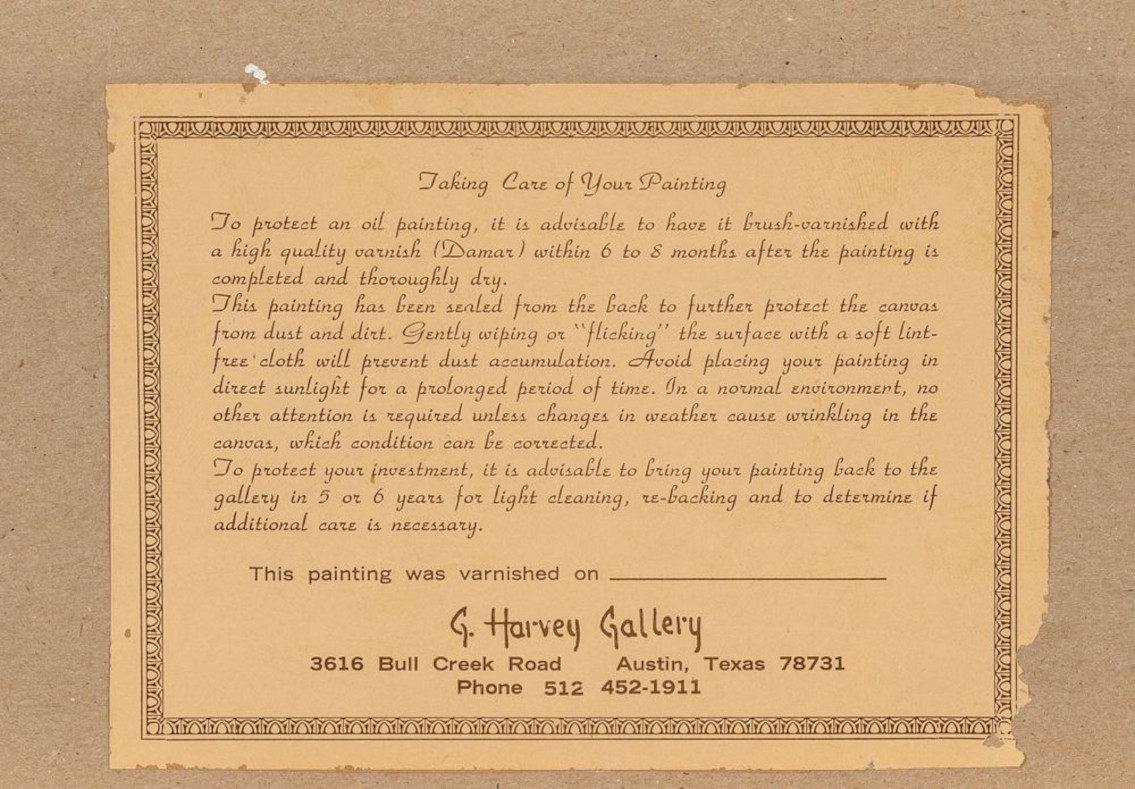 Taking Care of Your Painting
To protect an oil painting, it is advisable to have it brush-varnished with
a high quality varnish (Damar) within 6 to 8 months after the painting is
completed and thoroughly dry.
This painting has been sealed from the back to further protect the canvas
from dust and dirt. Gently wiping or "flicking" the surface with a soft lint-
free cloth will prevent dust accumulation. Avoid placing your painting in
direct sunlight for a prolonged period of time. In a normal environment, no
other attention is required unless changes in weather cause wrinkling in the
canvas, which condition can be corrected.
To protect your investment, it is advisable to bring your painting back to the
gallery in 5 or 6 years for light cleaning, re-backing and to determine if
additional care is necessary.
This painting was varnished on
G. Harvey Gallery
3616 Bull Creek Road Austin, Texas 78731
Phone 512 452-1911